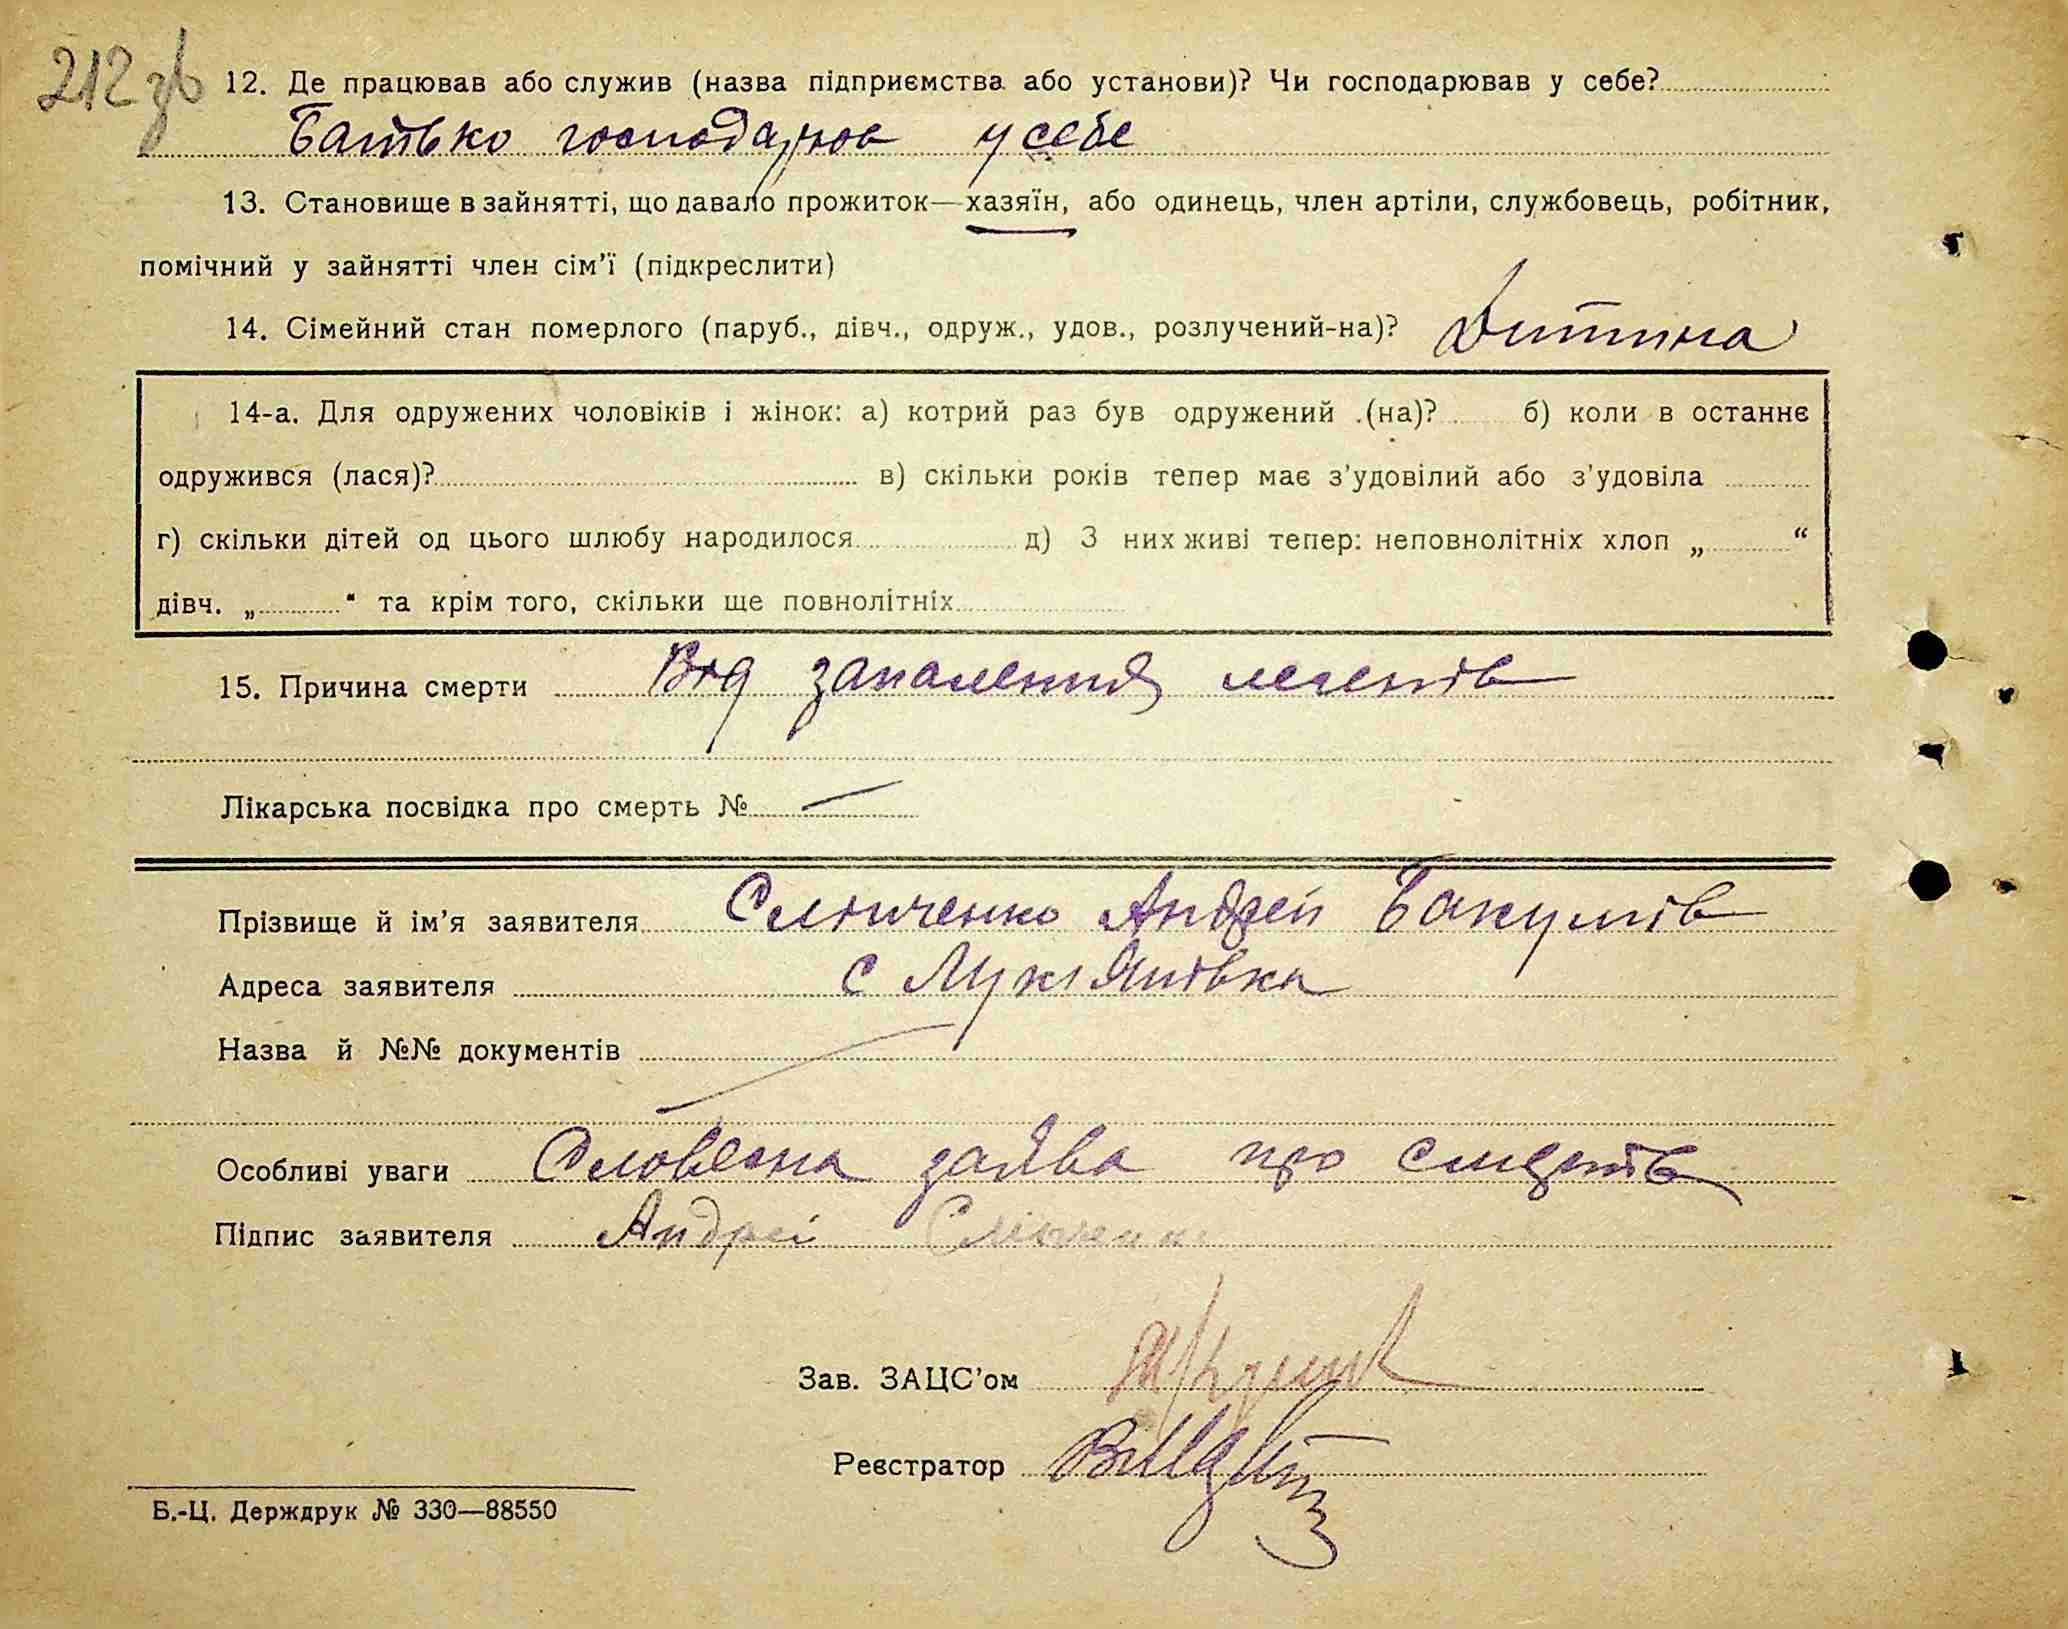 212 зв
12. Де працював або служив (назва підприємства або установи)? Чи господарював у себе?
Батько господарюв у себе
13. Становище в зайнятті, що давало прожиток—хазяїн, або одинець, член артіли, службовець, робітник,
помічний у зайнятті член сім'ї (підкреслити)
14. Сімейний стан померлого (паруб., дівч., одруж., удов., розлучений-на)? Дитина
14-а. Для одружених чоловіків і жінок: а) котрий раз був одружений (на)? б) коли в останнє
одружився (лася)? в) скільки років тепер має з'удовілий або з'удовіла
г) скільки дітей од цього шлюбу народилося д) З них живі тепер: неповнолітніх хлоп „ “
дівч. „ “ та крім того, скільки ще повнолітніх
15. Причина смерти Від запалення легенів
Лікарська посвідка про смерть № —
Прізвище й ім'я заявителя Андрей
Адреса заявителя с Лукіянівка
Назва й №№ документів
Особливі уваги Словесна заява про смерть
Підпис заявителя Андрей
Зав. ЗАЦС'ом
Реєстратор
Б.-Ц. Держдрук № 330—88550